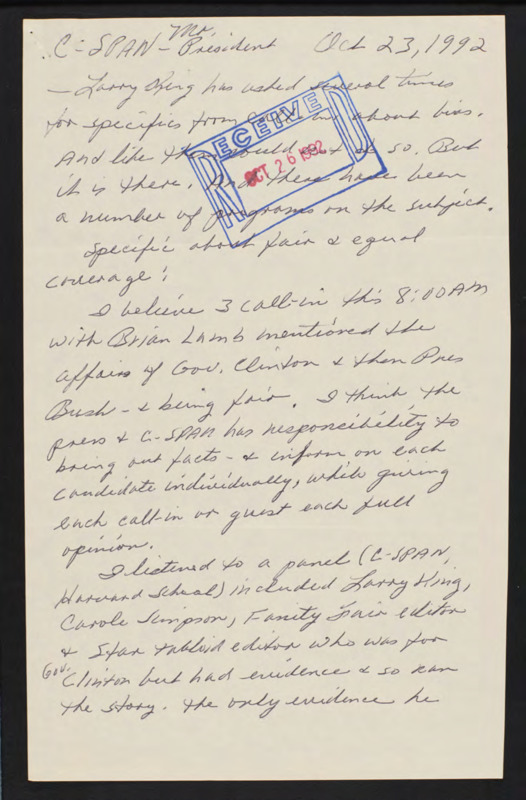 Mr.
C-SPAN - President Oct 23, 1992
- Larry King has asked several times
for specifics from about bias.
And like them would so. But
it is there. And there have been
a number of programs on the subject.
Specific about fair & equal
coverage:
I believe 3 call-in this 8:00AM
with Brian Lamb mentioned the
affairs of Gov. Clinton & then Pres
Bush - & being fair. I think the
press & C-SPAN has responsibility to
bring out facts - & inform on each
candidate individually, while giving
each call-in or guest each full
opinion.
I listened to a panel (C-SPAN,
Harvard School) included Larry King,
Carole Simpson, Fanity Fair editor
& Star tabloid editor who was for
Gov.
Clinton but had evidence & so ran
the story. The only evidence he
RECEIVED
OCT 26 1992